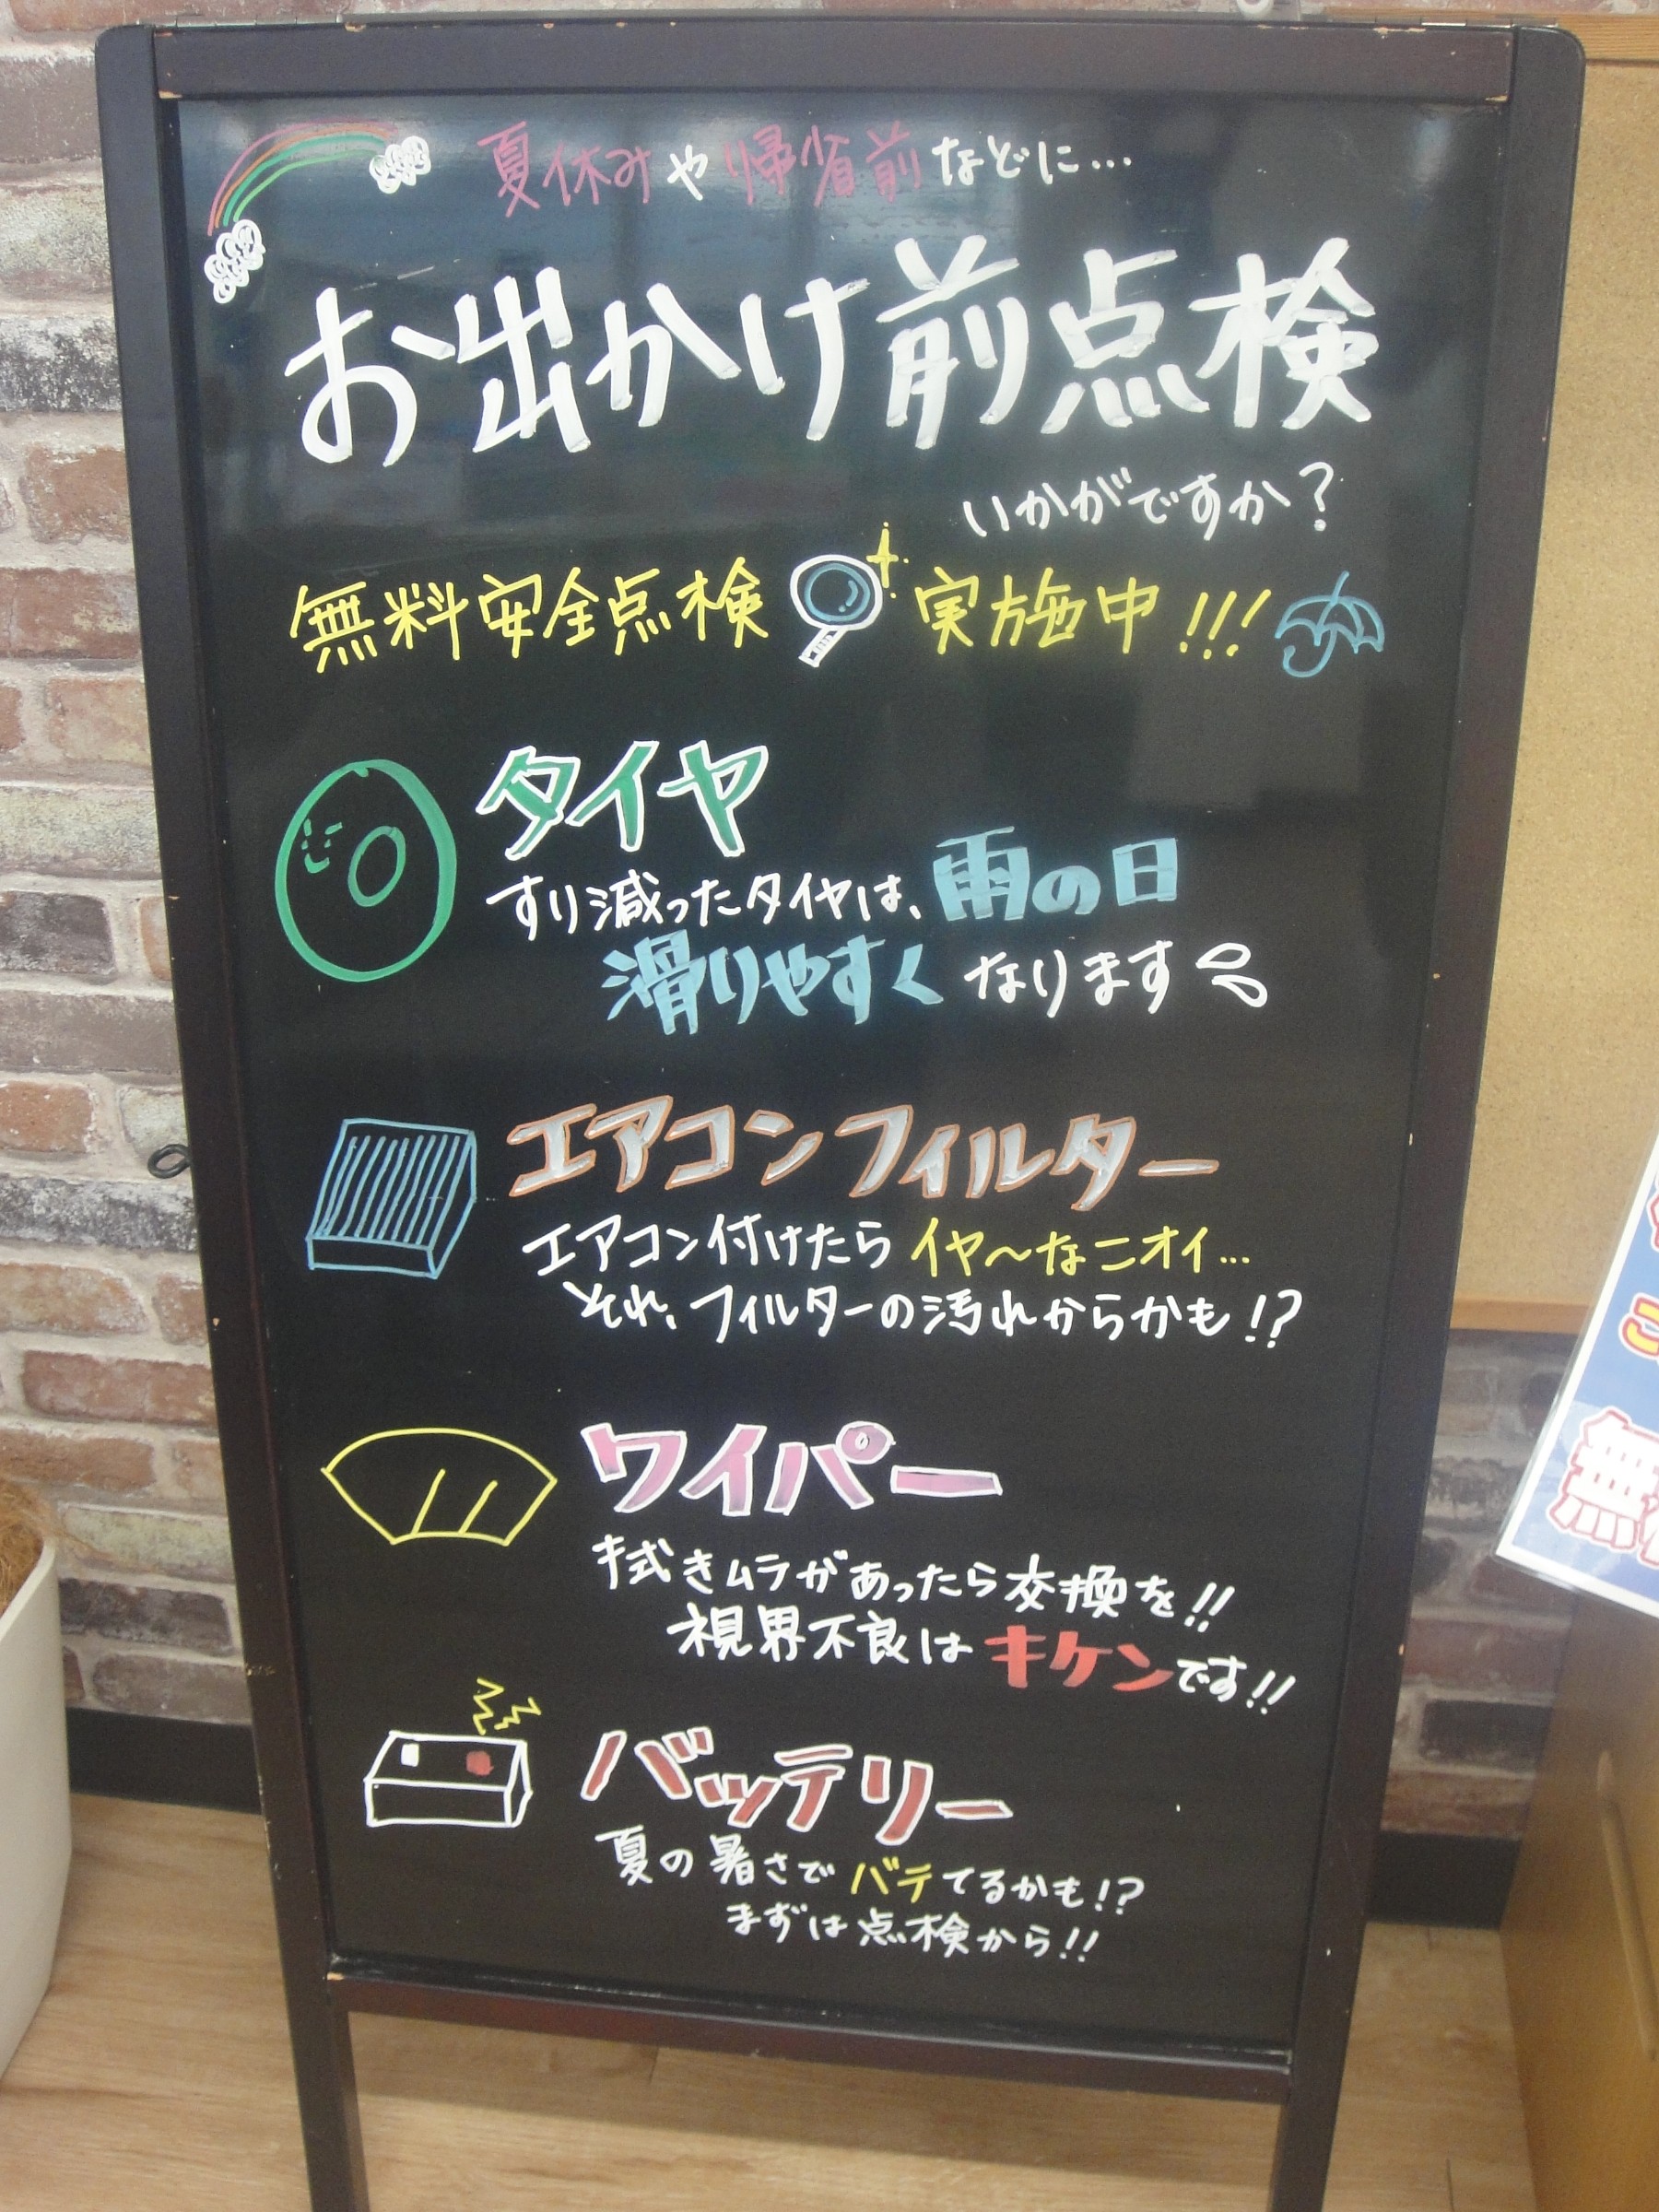 夏休みや帰省前などに…
お出かけ前点検
いかがですか?
無料安全点検 実施中!!!
タイヤ
すり減ったタイヤは、雨の日
滑りやすくなります
エアコンフィルター
エアコン付けたらイヤ〜なニオイ…
それ、フィルターの汚れからかも!?
ワイパー
拭きムラがあったら交換を!!
視界不良はキケンです!!
バッテリー
夏の暑さでバテてるかも!?
まずは点検から!!
無